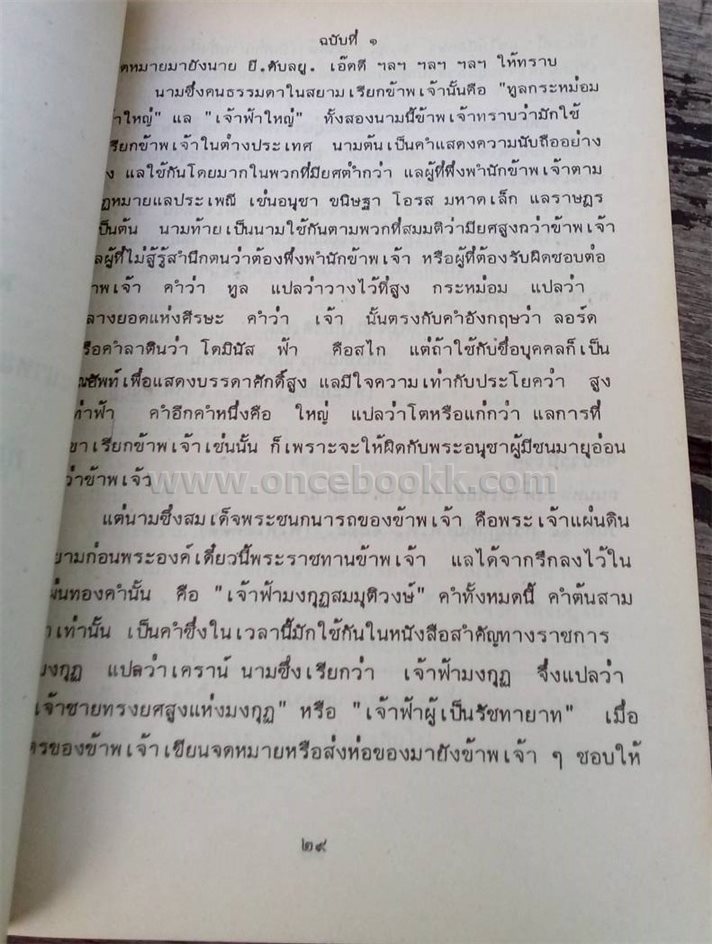 ฉบับที่ ๑
ดหมายมายังนาย ยี.ดับลยู. เอ๊ดดี ฯลฯ ฯลฯ ฯลฯ ให้ทราบ
นามซึ่งคนธรรมดาในสยามเรียกข้าพเจ้านั้นคือ "ทูลกระหม่อม
จ้าใหญ่" แล "เจ้าฟ้าใหญ่" ทั้งสองนามนี้ข้าพเจ้าทราบว่ามักใช้
เรียกข้าพเจ้าในต่างประเทศ นามต้นเป็นคำแสดงความนับถืออย่าง
ง แลใช้กันโดยมากในพวกที่มียศต่ำกว่า แลผู้ที่พึ่งพำนักข้าพเจ้าตาม
ฎหมายแลประเพณี เช่นอนุชา ขนิษฐา โอรส มหาดเล็ก แลราษฎร
เป็นต้น นามท้ายเป็นนามใช้กันตามพวกที่สมมติว่ามียศสูงกว่าข้าพเจ้า
ลผู้ที่ไม่สู้รู้สำนึกตนว่าต้องพึ่งพำนักข้าพเจ้า หรือผู้ที่ต้องรับผิดชอบต่อ
าพเจ้า คำว่า ทูล แปลว่าวางไว้ที่สูง กระหม่อม แปลว่า
ลางยอดแห่งศีรษะ คำว่า เจ้า นั้นตรงกับคำอังกฤษว่า ลอร์ด
รือคำลาตินว่า โดมินัส ฟ้า คือสไก แต่ถ้าใช้กับชื่อบุคคลก็เป็น
ณศัพท์เพื่อแสดงบรรดาศักดิ์สูง แลมีใจความเท่ากับประโยคว่า สูง
ท่าฟ้า คำอีกคำหนึ่งคือ ใหญ่ แปลว่าโตหรือแก่กว่า แลการที่
ขาเรียกข้าพเจ้าเช่นนั้น ก็เพราะจะให้ผิดกับพระอนุชาผู้มีชนมายุอ่อน
ว่าข้าพเจ้า
www.oncebookk.com
แต่นามซึ่งสมเด็จพระชนกนารถของข้าพเจ้า คือพระเจ้าแผ่นดิน
ยามก่อนพระองค์เดี๋ยวนี้พระราชทานข้าพเจ้า แลได้จารึกลงไว้ใน
ผ่นทองคำนั้น คือ "เจ้าฟ้ามงกุฏสมมุติวงษ์" คำทั้งหมดนี้ คำต้นสาม
เท่านั้น เป็นคำซึ่งในเวลานี้มักใช้กันในหนังสือสำคัญทางราชการ
มงกุฏ แปลว่าเคราน์ นามซึ่งเรียกว่า เจ้าฟ้ามงกุฏ จึ่งแปลว่า
เจ้าชายทรงยศสูงแห่งมงกุฏ" หรือ "เจ้าฟ้าผู้เป็นรัชทายาท" เมื่อ
ตรของข้าพเจ้าเขียนจดหมายหรือส่งห่อของมายังข้าพเจ้า ๆ ชอบให้
๒๙